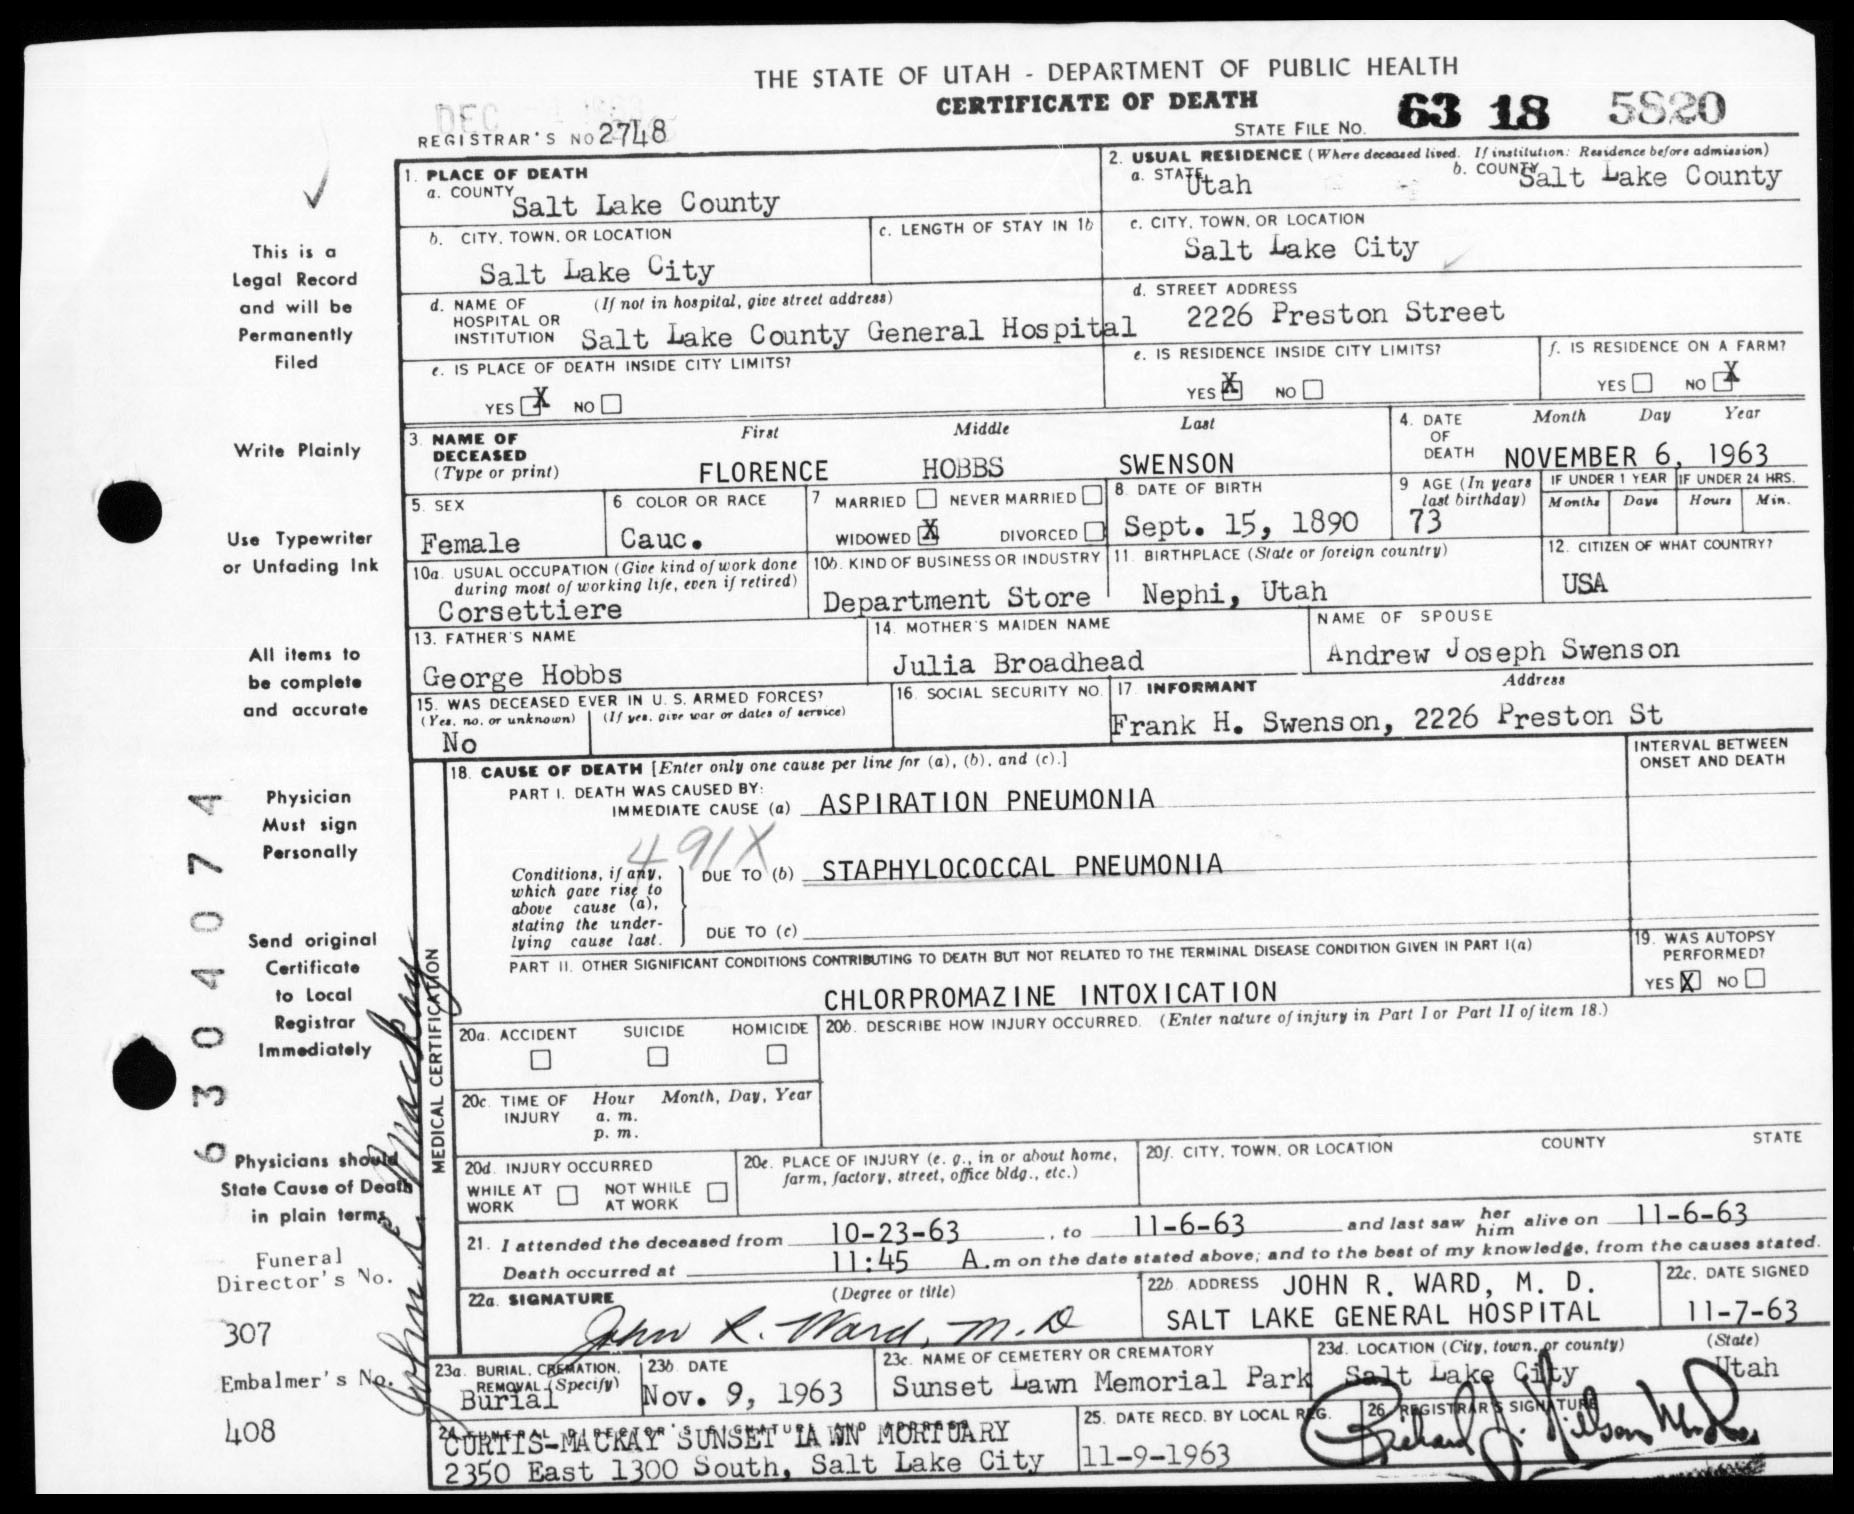 THE STATE OF UTAH - DEPARTMENT OF PUBLIC HEALTH
CERTIFICATE OF DEATH
STATE FILE NO. 63 18 5820
DEC
REGISTRAR'S NO 2748
1. PLACE OF DEATH
a. COUNTY Salt Lake County
2. USUAL RESIDENCE (Where deceased lived. If institution: Residence before admission)
a. STATE Utah b. COUNTY Salt Lake County
b. CITY, TOWN, OR LOCATION Salt Lake City
c. LENGTH OF STAY IN 1b
c. CITY, TOWN, OR LOCATION
Salt Lake City
d. NAME OF HOSPITAL OR INSTITUTION (If not in hospital, give street address)
Salt Lake County General Hospital
d. STREET ADDRESS
2226 Preston Street
e. IS PLACE OF DEATH INSIDE CITY LIMITS?
YES X NO
e. IS RESIDENCE INSIDE CITY LIMITS?
YES X NO
f. IS RESIDENCE ON A FARM?
YES NO X
3. NAME OF DECEASED (Type or print)
First Middle Last
FLORENCE HOBBS SWENSON
4. DATE OF DEATH Month Day Year
NOVEMBER 6, 1963
5. SEX
Female
6 COLOR OR RACE
Cauc.
7 MARRIED NEVER MARRIED
WIDOWED X DIVORCED
8. DATE OF BIRTH
Sept. 15, 1890
9 AGE (In years last birthday)
73
IF UNDER 1 YEAR
Months Days
IF UNDER 24 HRS.
Hours Min.
10a. USUAL OCCUPATION (Give kind of work done during most of working life, even if retired)
Corsettiere
10b. KIND OF BUSINESS OR INDUSTRY
Department Store
11. BIRTHPLACE (State or foreign country)
Nephi, Utah
12. CITIZEN OF WHAT COUNTRY?
USA
13. FATHER'S NAME
George Hobbs
14. MOTHER'S MAIDEN NAME
Julia Broadhead
NAME OF SPOUSE
Andrew Joseph Swenson
15. WAS DECEASED EVER IN U. S. ARMED FORCES?
(Yes, no, or unknown) (If yes, give war or dates of service)
No
16. SOCIAL SECURITY NO.
17. INFORMANT Address
Frank H. Swenson, 2226 Preston St
MEDICAL CERTIFICATION
18. CAUSE OF DEATH [Enter only one cause per line for (a), (b), and (c).]
INTERVAL BETWEEN ONSET AND DEATH
PART I. DEATH WAS CAUSED BY:
IMMEDIATE CAUSE (a) ASPIRATION PNEUMONIA
491X
Conditions, if any, which gave rise to above cause (a), stating the underlying cause last.
DUE TO (b) STAPHYLOCOCCAL PNEUMONIA
DUE TO (c)
PART II. OTHER SIGNIFICANT CONDITIONS CONTRIBUTING TO DEATH BUT NOT RELATED TO THE TERMINAL DISEASE CONDITION GIVEN IN PART I(a)
CHLORPROMAZINE INTOXICATION
19. WAS AUTOPSY PERFORMED?
YES X NO
20a. ACCIDENT SUICIDE HOMICIDE
20b. DESCRIBE HOW INJURY OCCURRED. (Enter nature of injury in Part I or Part II of item 18.)
20c. TIME OF INJURY Hour Month, Day, Year
a. m.
p. m.
20d. INJURY OCCURRED
WHILE AT WORK NOT WHILE AT WORK
20e. PLACE OF INJURY (e. g., in or about home, farm, factory, street, office bldg., etc.)
20f. CITY, TOWN, OR LOCATION COUNTY STATE
21. I attended the deceased from 10-23-63, to 11-6-63 and last saw her him alive on 11-6-63
Death occurred at 11:45 A.m on the date stated above; and to the best of my knowledge, from the causes stated.
22a. SIGNATURE (Degree or title)
John R. Ward, M.D
22b. ADDRESS JOHN R. WARD, M. D.
SALT LAKE GENERAL HOSPITAL
22c. DATE SIGNED
11-7-63
23a. BURIAL, CREMATION, REMOVAL (Specify)
Burial
23b. DATE
Nov. 9, 1963
23c. NAME OF CEMETERY OR CREMATORY
Sunset Lawn Memorial Park
23d. LOCATION (City, town, or county) (State)
Salt Lake City Utah
24. FUNERAL DIRECTOR'S SIGNATURE AND ADDRESS
CURTIS-MACKAY SUNSET LAWN MORTUARY
2350 East 1300 South, Salt Lake City
25. DATE RECD. BY LOCAL REG.
11-9-1963
26. REGISTRAR'S SIGNATURE
Richard J. Nilson
This is a
Legal Record
and will be
Permanently
Filed
Write Plainly
Use Typewriter
or Unfading Ink
All items to
be complete
and accurate
Physician
Must sign
Personally
Send original
Certificate
to Local
Registrar
Immediately
Physicians should
State Cause of Death
in plain terms
Funeral
Director's No.
307
Embalmer's No.
408
6304074